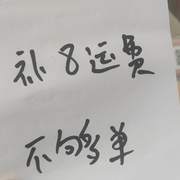 补8运费
不够单